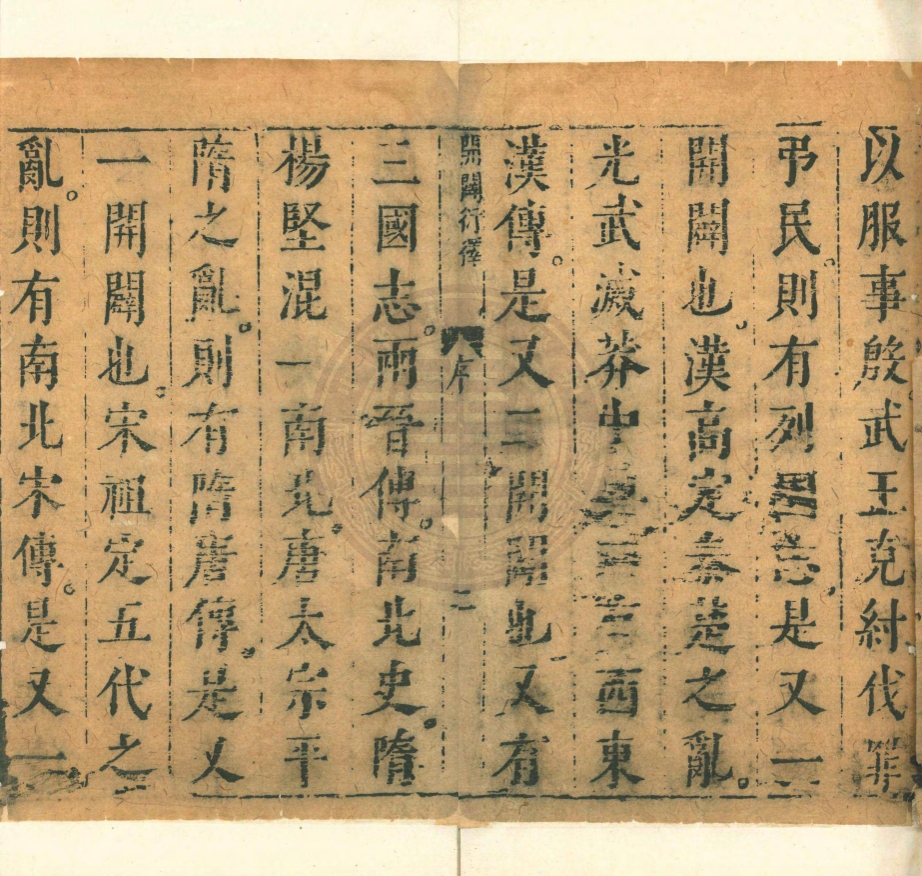 以服事殷武王克紂伐罪
弔民。則有列國志。是又一
開闢也。漢高定秦楚之亂。
光武滅莽中西東
漢傳。是又二開闢也又有
開闢衍繹 序 二
三國志。兩晉傳。南北史。隋
楊堅混一南北。唐太宗平
隋之亂。則有隋唐傳。是又
一開闢也。宋祖定五代之
亂。則有南北宋傳。是又一